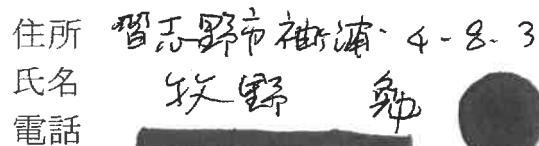 住所 習志野市袖ヶ浦 4-8-3
氏名 牧野 勉
電話